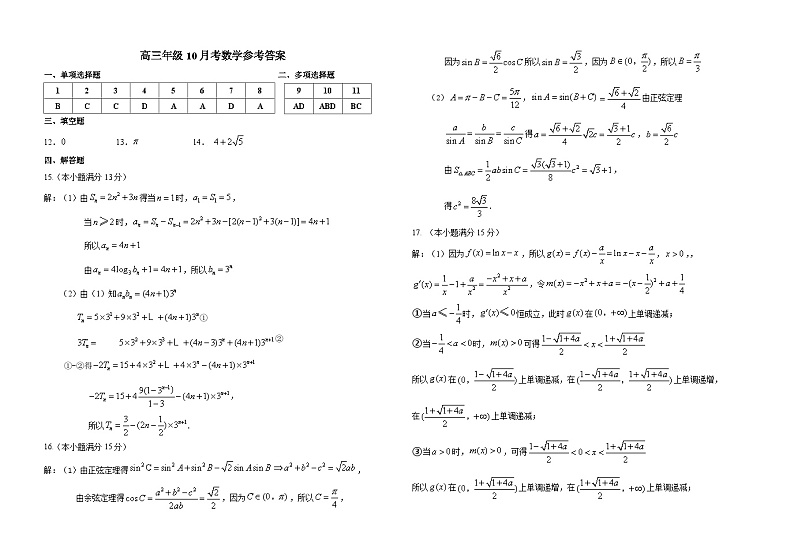 高三年级10月考数学参考答案
一、单项选择题 二、多项选择题
1 2 3 4 5 6 7 8 9 10 11
B C C D A A D A AD ABD BC
三、填空题
12. 0 13. π 14. 4+2√5
四、解答题
15.(本小题满分13分)
解:(1)由Sₙ=2n²+3n得当n=1时, a₁=S₁=5,
当n≥2时, aₙ=Sₙ−Sₙ₋₁=2n²+3n−[2(n−1)²+3(n−1)]=4n+1
所以aₙ=4n+1
由aₙ=4log₃bₙ+1=4n+1, 所以bₙ=3ⁿ
(2)由(1)知aₙbₙ=(4n+1)3ⁿ
Tₙ=5×3¹+9×3²+L+(4n+1)3ⁿ①
3Tₙ= 5×3²+9×3³+L+(4n−3)3ⁿ+(4n+1)3ⁿ⁺¹②
①-②得−2Tₙ=15+4×3²+L+4×3ⁿ−(4n+1)×3ⁿ⁺¹
−2Tₙ=15+4 9(1−3ⁿ⁻¹)/(1−3)−(4n+1)×3ⁿ⁺¹,
所以Tₙ=3/2+(2n−1/2)×3ⁿ⁺¹.
16.(本小题满分15分)
解:(1)由正弦定理得sin²C=sin²A+sin²B−√2 sinA sinB⇒a²+b²−c²=√2ab,
由余弦定理得cosC=(a²+b²−c²)/2ab=√2/2, 因为C∈(0,π), 所以C=π/4,
因为sinB=√6/2 cosC所以sinB=√3/2, 因为B∈(0,π/2), 所以B=π/3
(2)A=π−B−C=5π/12, sinA=sin(B+C)=(√6+√2)/4由正弦定理
a/sinA=b/sinB=c/sinC得a=(√6+√2)/4 √2c=(√3+1)/2 c, b=√6/2 c
由S△ABC=1/2 ab sinC=√3(√3+1)/8 c²=√3+1,
得c²=8√3/3.
17. (本小题满分15分)
解:(1)因为f(x)=lnx−x, 所以g(x)=f(x)−a/x=lnx−x−a/x, x>0,,
g′(x)=1/x−1+a/x²=(−x²+x+a)/x², 令m(x)=−x²+x+a=−(x−1/2)²+a+1/4
①当a≤−1/4时, g′(x)≤0恒成立, 此时g(x)在(0,+∞)上单调递减;
②当−1/4<a<0时, m(x)>0可得(1−√1+4a)/2<x<(1+√1+4a)/2
所以g(x)在(0,(1−√1+4a)/2)上单调递减, 在((1−√1+4a)/2,(1+√1+4a)/2)上单调递增,
在((1+√1+4a)/2,+∞)上单调递减;
③当a>0时, m(x)>0, 可得(1−√1+4a)/2<0<x<(1+√1+4a)/2
所以g(x)在(0,(1+√1+4a)/2)上单调递增, 在((1+√1+4a)/2,+∞)上单调递减;